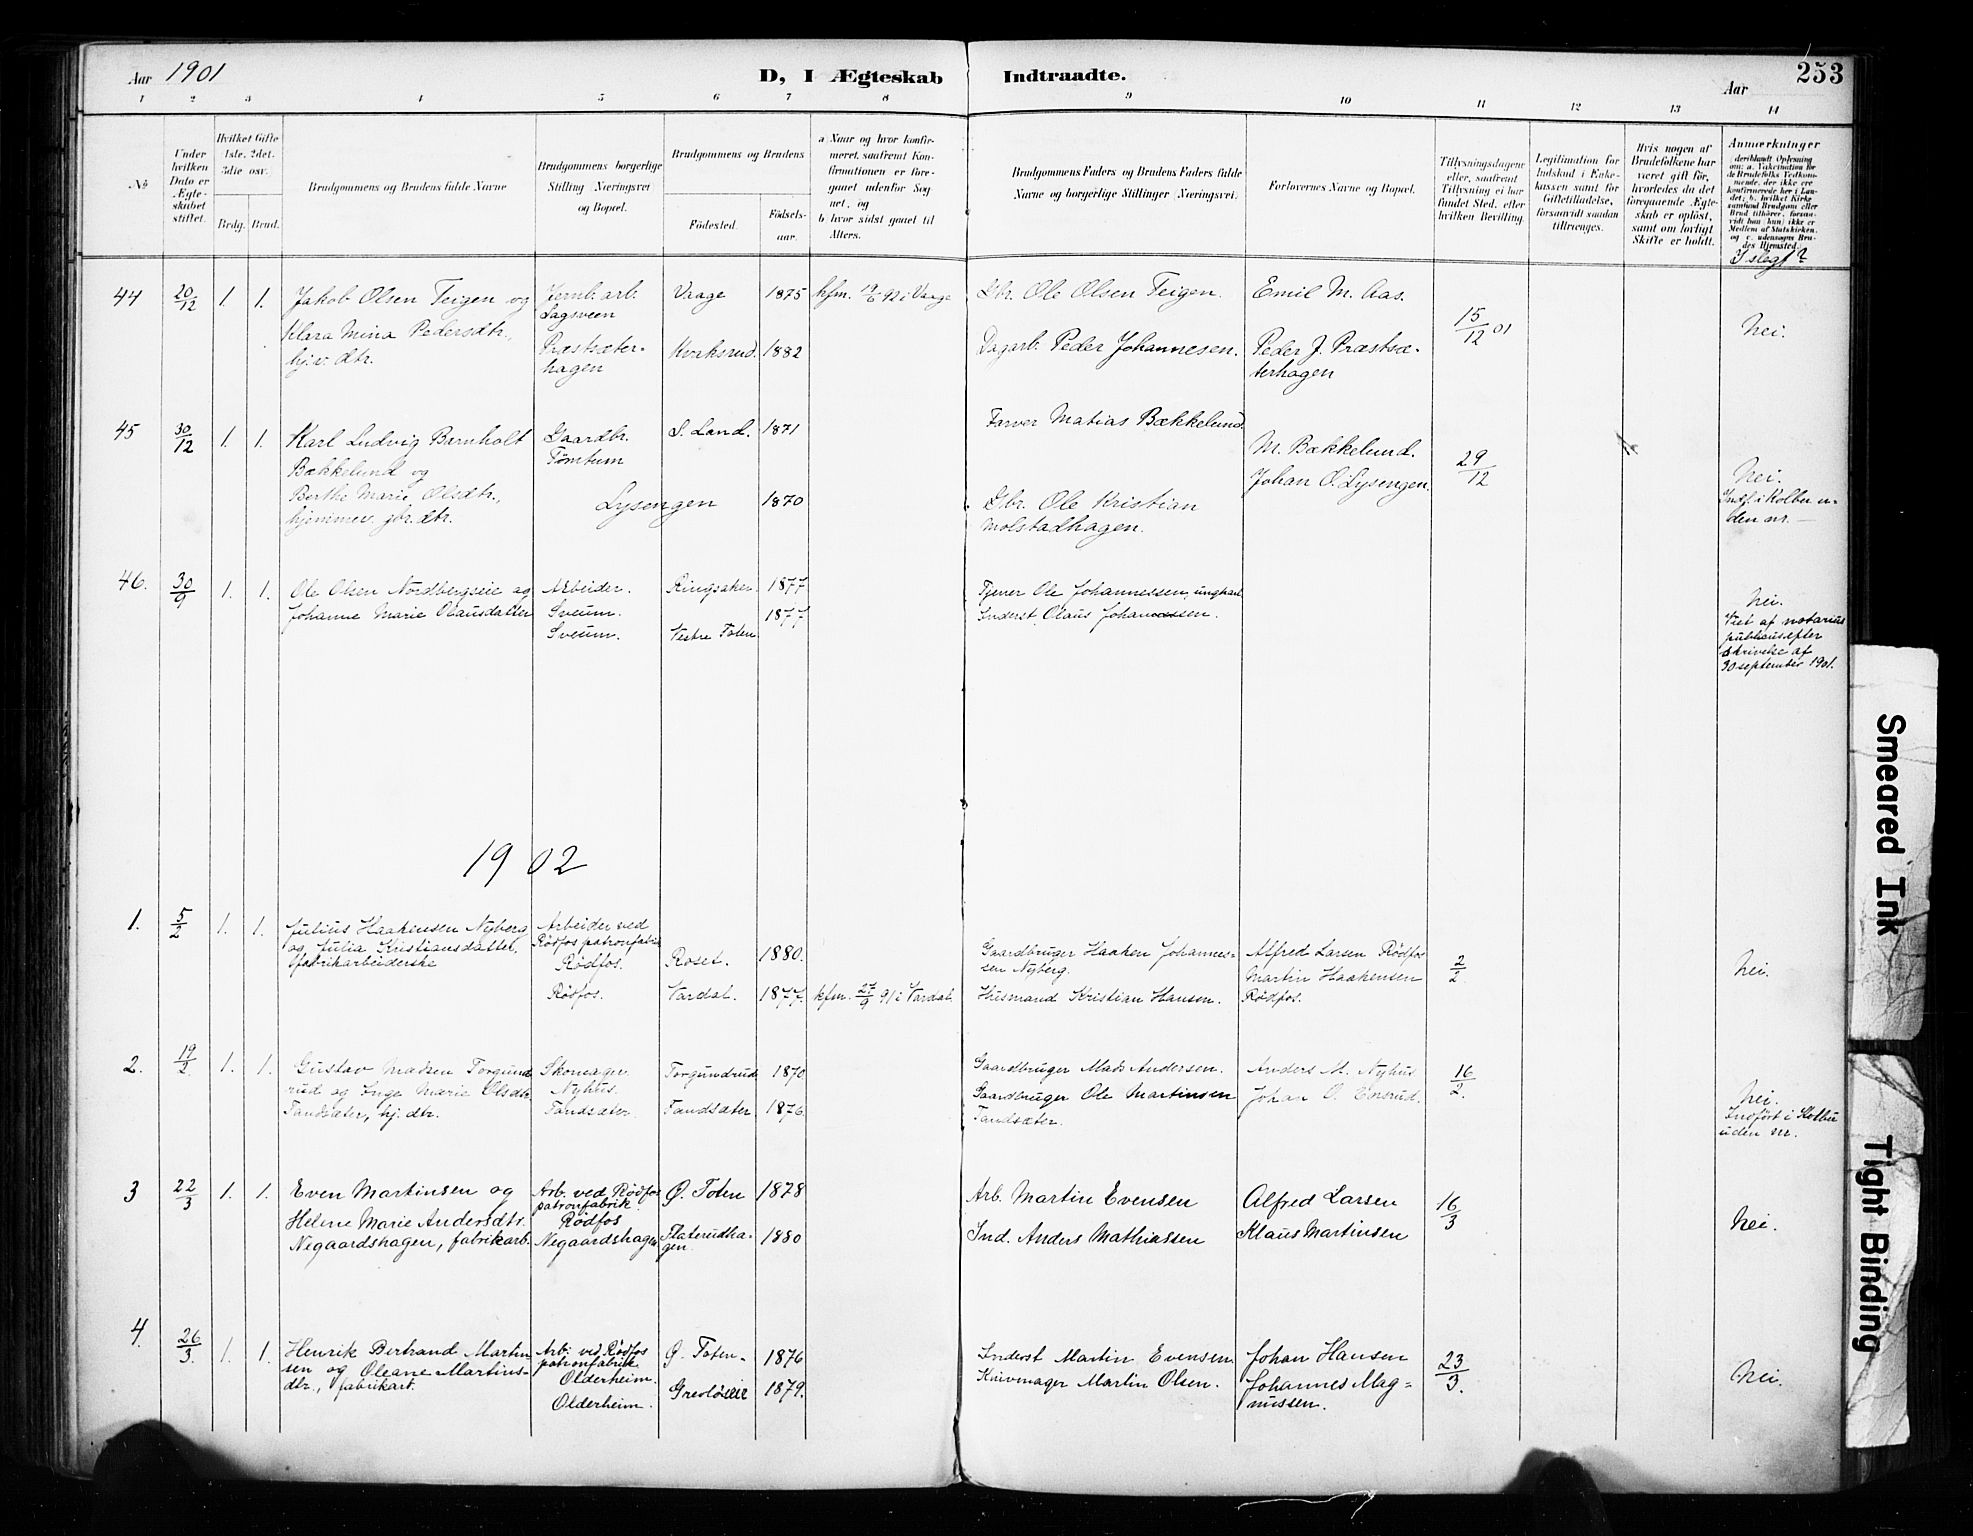 Aar 1901
D, I Ægteskab Indtraadte.
Aar
253
1 2 3 4 5 6 7 8 9 10 11 12 13 14
No
Under hvilken Dato er Ægteskabet stiftet.
Hvilket Gifte 1ste, 2det, 3die osv.
Brdg. Brud.
Brudgommens og Brudens fulde Navne
Brudgommens borgerlige Stilling Næringsvei og Bopæl.
Brudgommens og Brudens
Fødested.
Fødsels-aar.
a Naar og hvor konfirmeret, saafremt Konfirmationen er foregaaet udenfor Sognet, og
b hvor sidst gaaet til Alters.
Brudgommens Faders og Brudens Faders fulde Navne og borgerlige Stillinger (Næringsvei.
Forlovernes Navne og Bopæl.
Tillysningsdagene eller, saafremt Tillysning ei har fundet Sted, efter hvilken Bevilling.
Legitimation for Indskud i Enkekassen samt for Giftetilladelse, forsaavidt saadan tiltrænges.
Hvis nogen af Brudefolkene har været gift før, hvorledes da det foregaaende Ægteskab er opløst, samt om lovligt Skifte er holdt.
Anmærkninger
I slegt?
44 20/12 1. 1. Jakob Olsen Teigen og
Klara Mina Pedersdtr.,
hjv. dtr.
Jernb. arb.
Lagsveen
Præstsæter-
hagen
Vaage 1875
Kvorksrud 1882
kfm. 19/6 92 i Vaage
Gbr. Ole Olsen Teigen.
Dagarb. Peder Johannesen.
Emil M. Aas.
Peder J. Præstsæ-
terhagen
15/12 01
Nei.
45 30/12 1. 1. Karl Ludvig Barnholt
Bækkelund og
Berthe Marie Olsdtr.,
hjemmev. gbr. dtr.
Gaardbr.
Tømtum
Lysengen
S. Land. 1871
1870
Farver Matias Bækkelund.
Gbr. Ole Kristian
Molstadhagen.
M. Bækkelund.
Johan O. Lysengen.
29/12
Nei.
Indf. i Kolbu u-
den nr. —
46. 30/9 1. 1. Ole Olsen Nordbergseie og
Johanne Marie Olausdatter
Arbeider.
Sveum.
Sveum.
Ringsaker. 1877
1877
Vestre Toten
Tjener Ole Johannessen, ungkarl
Inderst Olaus Johannessen.
Nei.
Viet af notarius
publicus efter
skrivelse af
30 september 1901.
1902
1. 5/2 1. 1. Julius Haakensen Nyberg
og Julia Kristiansdatter,
fabrikarbeiderske
Arbeider ved
Rødfos patronfabrik
Rødfos.
Rødfos.
Roset. 1880.
Vardal. 1877.
kfm. 27/9 91 i Vardal.
Gaardbruger Haaken Johannes-
sen Nyberg.
Husmand Kristian Hansen.
Alfred Larsen Rødfos
Martin Haakensen
Rødfos.
2/2
Nei.
2. 19/2 1. 1. Gustav Madsen Torgund
rud og Inge Marie Olsdtr.
Tandsæter, hj. dtr.
Skomager.
Nyhus.
Tandsæter.
Torgundrud 1870
Tandsæter 1876
Gaardbruger Mads Andersen.
Gaardbruger Ole Martinsen
Tandsæter.
Anders M. Nyhus
Johan O.
16/2.
Nei.
Indført i Kolbu
uden nr.
3 22/3 1. 1. Even Martinsen og
Helene Marie Andersdtr.
Negaardshagen, fabrikarb.
Arb. ved Rødfos
patronfabrik.
Rødfos
Negaardshagen
Ø. Toten 1878
Flaterudha-
gen. 1880
Arb. Martin Evensen
Ind. Anders Mathiassen
Alfred Larsen
Klaus Martinsen
16/3
Nei.
4 26/3. 1. 1. Henrik Bertrand Martin-
sen og Oleane Martins-
dtr., fabrikarb.
Arb. ved Rødfos
patronfabrik.
Olderheim.
Olderheim.
Ø. Toten. 1876
Grevløseie 1879.
Inderst Martin Evensen
Knivmager Martin Olsen.
Johan Hansen
Johannes Mag-
nussen.
23/3.
Nei.
Smeared Ink
Tight Binding